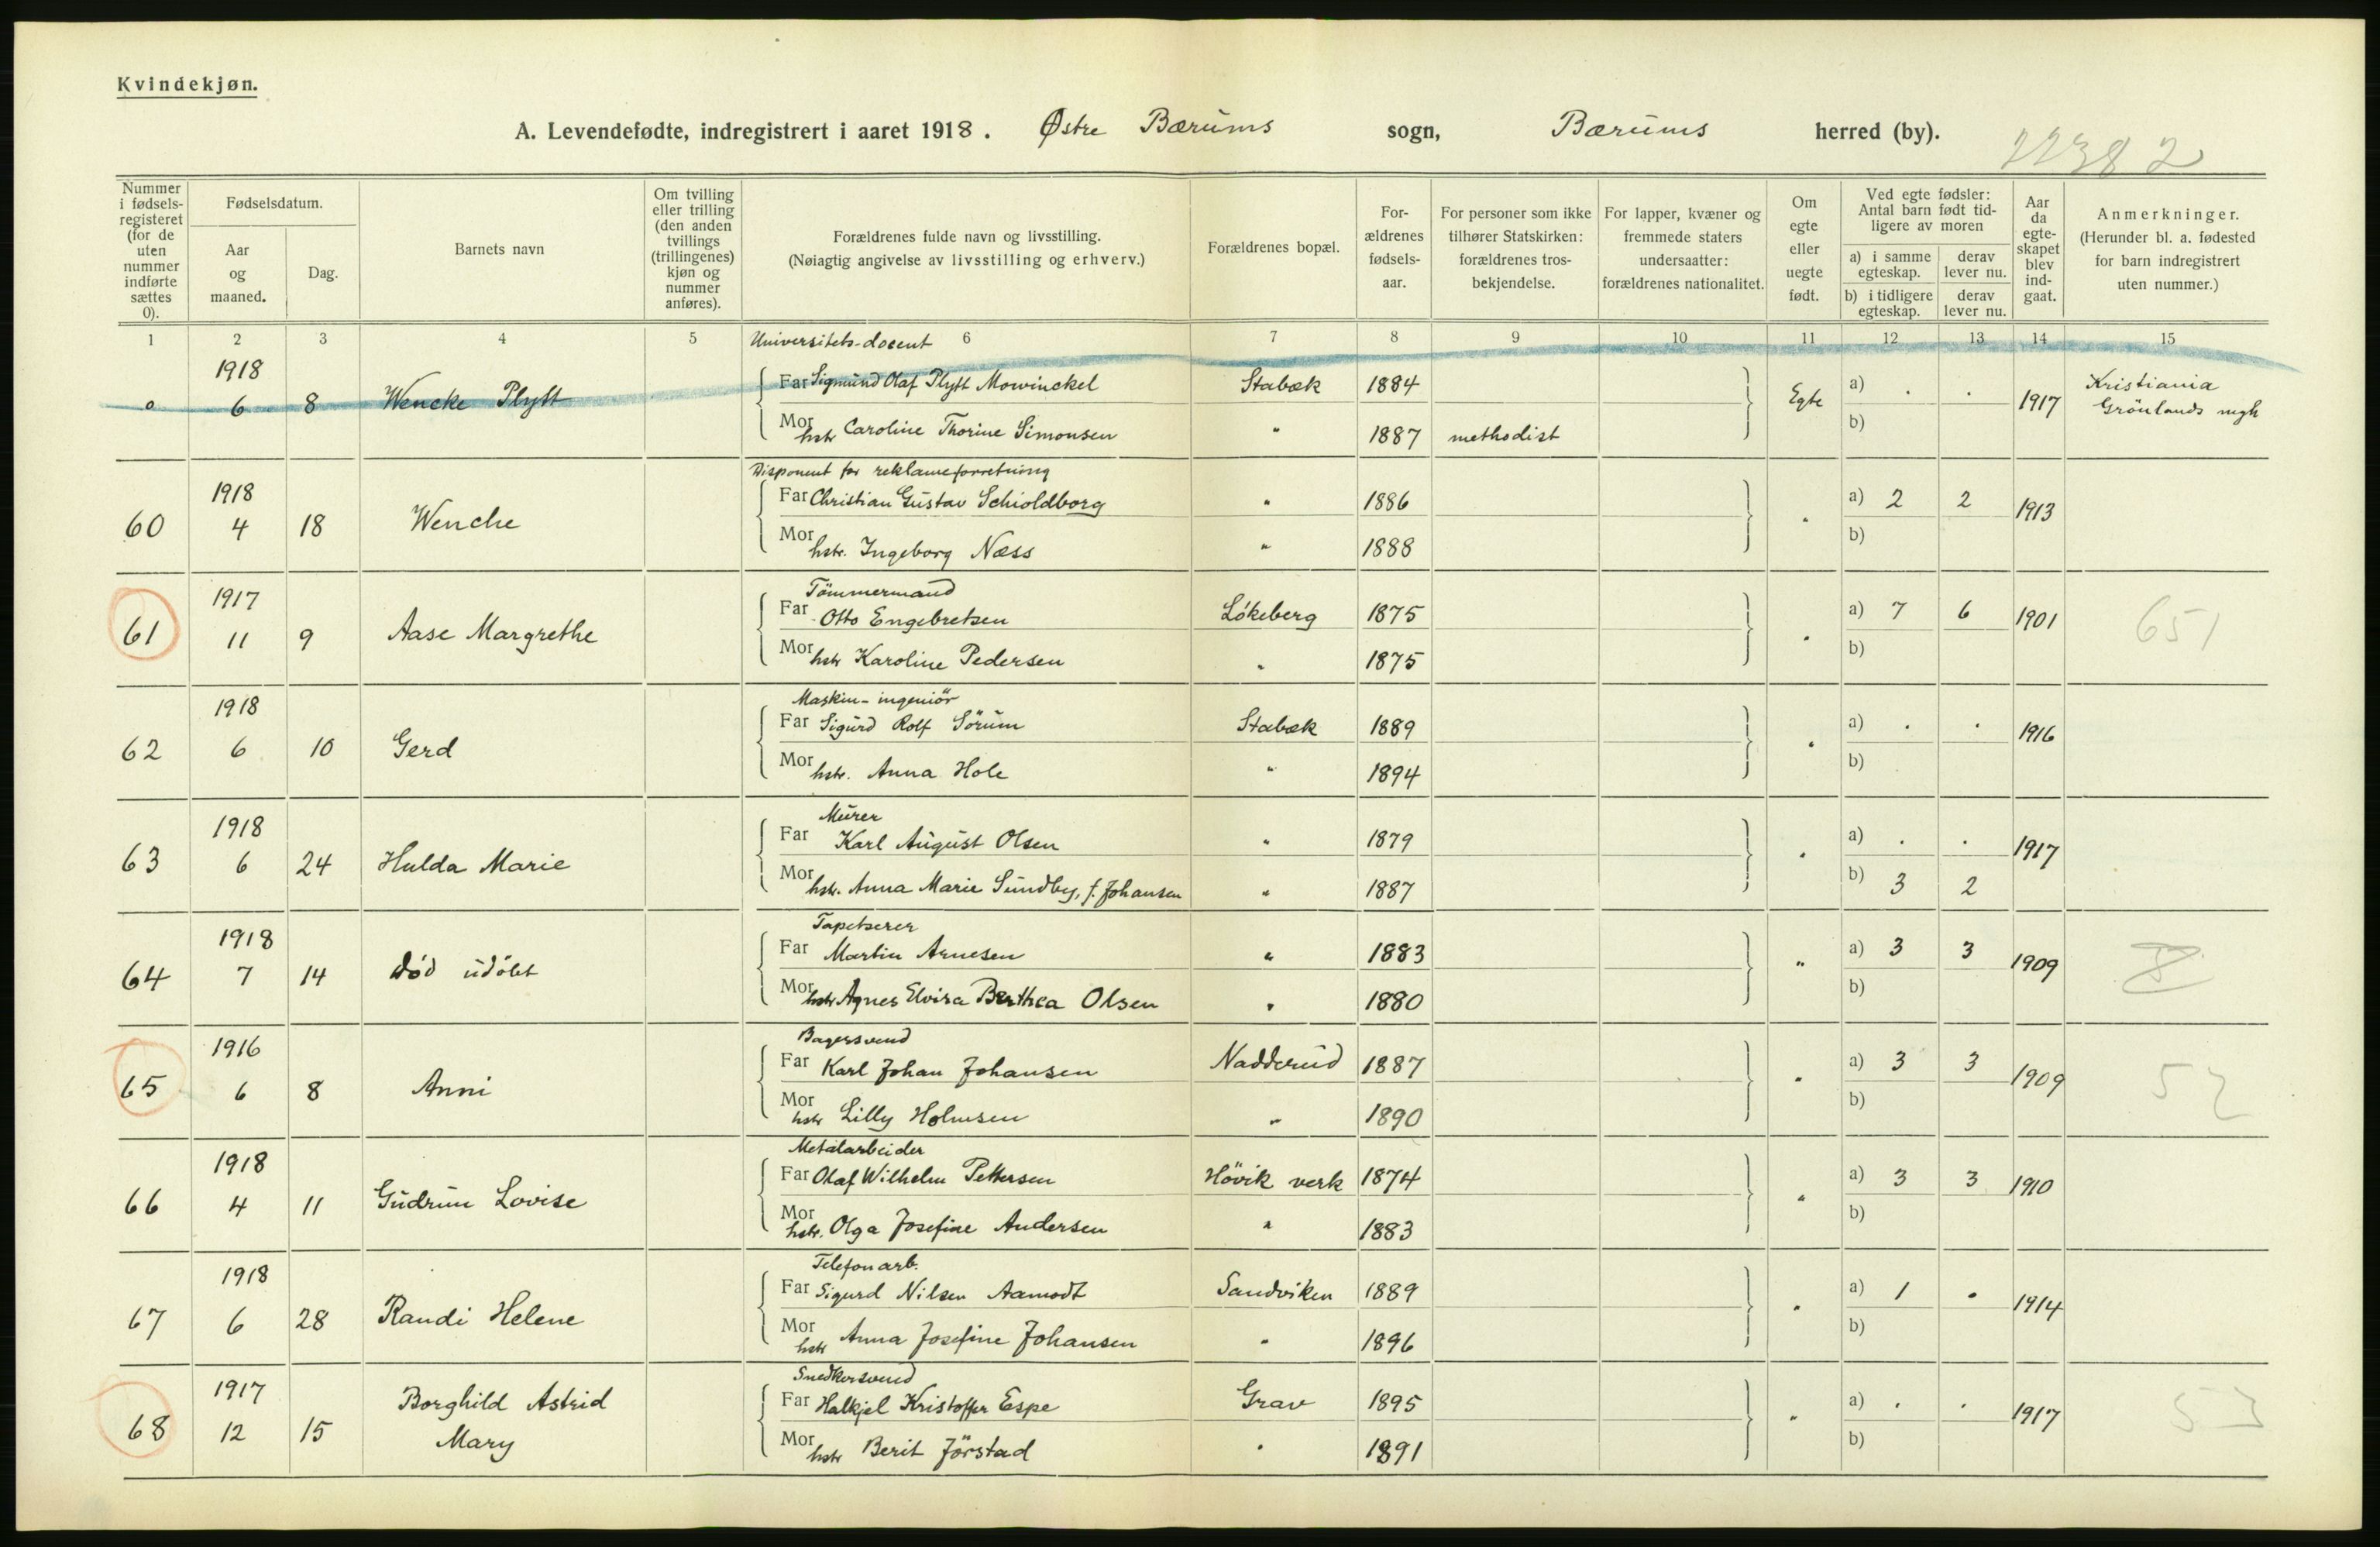 Kvindekjøn.
A. Levendefødte, indregistrert i aaret 1918. Østre Bærums sogn, Bærums herred (by).
22382
Nummer i fødselsregisteret (for de uten nummer indførte sættes 0).
Fødselsdatum.
Aar og maaned.
Dag.
Barnets navn
Om tvilling eller trilling (den anden tvillings (trillingenes) kjøn og nummer anføres).
Forældrenes fulde navn og livsstilling.
(Nøiagtig angivelse av livsstilling og erhverv.)
Forældrenes bopæl.
Forældrenes fødselsaar.
For personer som ikke tilhører Statskirken: forældrenes trosbekjendelse.
For lapper, kvæner og fremmede staters undersaatter: forældrenes nationalitet.
Om egte eller uegte født.
Ved egte fødsler: Antal barn født tidligere av moren
a) i samme egteskap.
derav lever nu.
b) i tidligere egteskap.
derav lever nu.
Aar da egteskapet blev indgaat.
Anmerkninger.
(Herunder bl. a. fødested for barn indregistrert uten nummer.)
1 2 3 4 5 6 7 8 9 10 11 12 13 14 15
Universitets-docent
0 1918 6 8 Wencke Plytt Far Sigmund Olaf Plytt Mowinckel Stabæk 1884 Egte a) . . 1917 Kristiania Grönlands mgh
Mor hstr Caroline Thorine Simonsen " 1887 methodist b)
Disponent for reklameforretning
60 1918 4 18 Wenche Far Christian Gustav Schioldborg " 1886 " a) 2 2 1913
Mor hstr. Ingeborg Næss " 1888 b)
Tömmermand
61 1917 11 9 Aase Margrethe Far Otto Engebretsen Lökeberg 1875 " a) 7 6 1901 651
Mor hstr Karoline Pedersen " 1875 b)
Maskin-ingeniör
62 1918 6 10 Gerd Far Sigurd Rolf Sörum Stabæk 1889 " a) . . 1916
Mor hstr. Anna Hole " 1894 b)
Murer
63 1918 6 24 Hulda Marie Far Karl August Olsen " 1879 " a) . . 1917
Mor hstr. Anna Marie Sundby, f. Johansen " 1887 b) 3 2
Tapetserer
64 1918 7 14 död udöbt Far Martin Arnesen " 1883 " a) 3 3 1909
Mor hstr Agnes Elvira Berthea Olsen " 1880 b)
Bagersvend
65 1916 6 8 Anni Far Karl Johan Johansen Nadderud 1887 " a) 3 3 1909 52
Mor hstr Lilly Holmsen " 1890 b)
Metalarbeider
66 1918 4 11 Gudrun Lovise Far Olaf Wilhelm Pettersen Hövik verk 1874 " a) 3 3 1910
Mor hstr. Olga Josefine Andersen " 1883 b)
Telefonarb.
67 1918 6 28 Randi Helene Far Sigurd Nilsen Aamodt Sandviken 1889 " a) 1 . 1914
Mor hstr Anna Josefine Johansen " 1896 b)
Snedkersvend
68 1917 12 15 Borghild Astrid Mary Far Halkjel Kristoffer Espe Grav 1895 " a) . . 1917 53
Mor hstr Berit Jörstad " 1891 b)